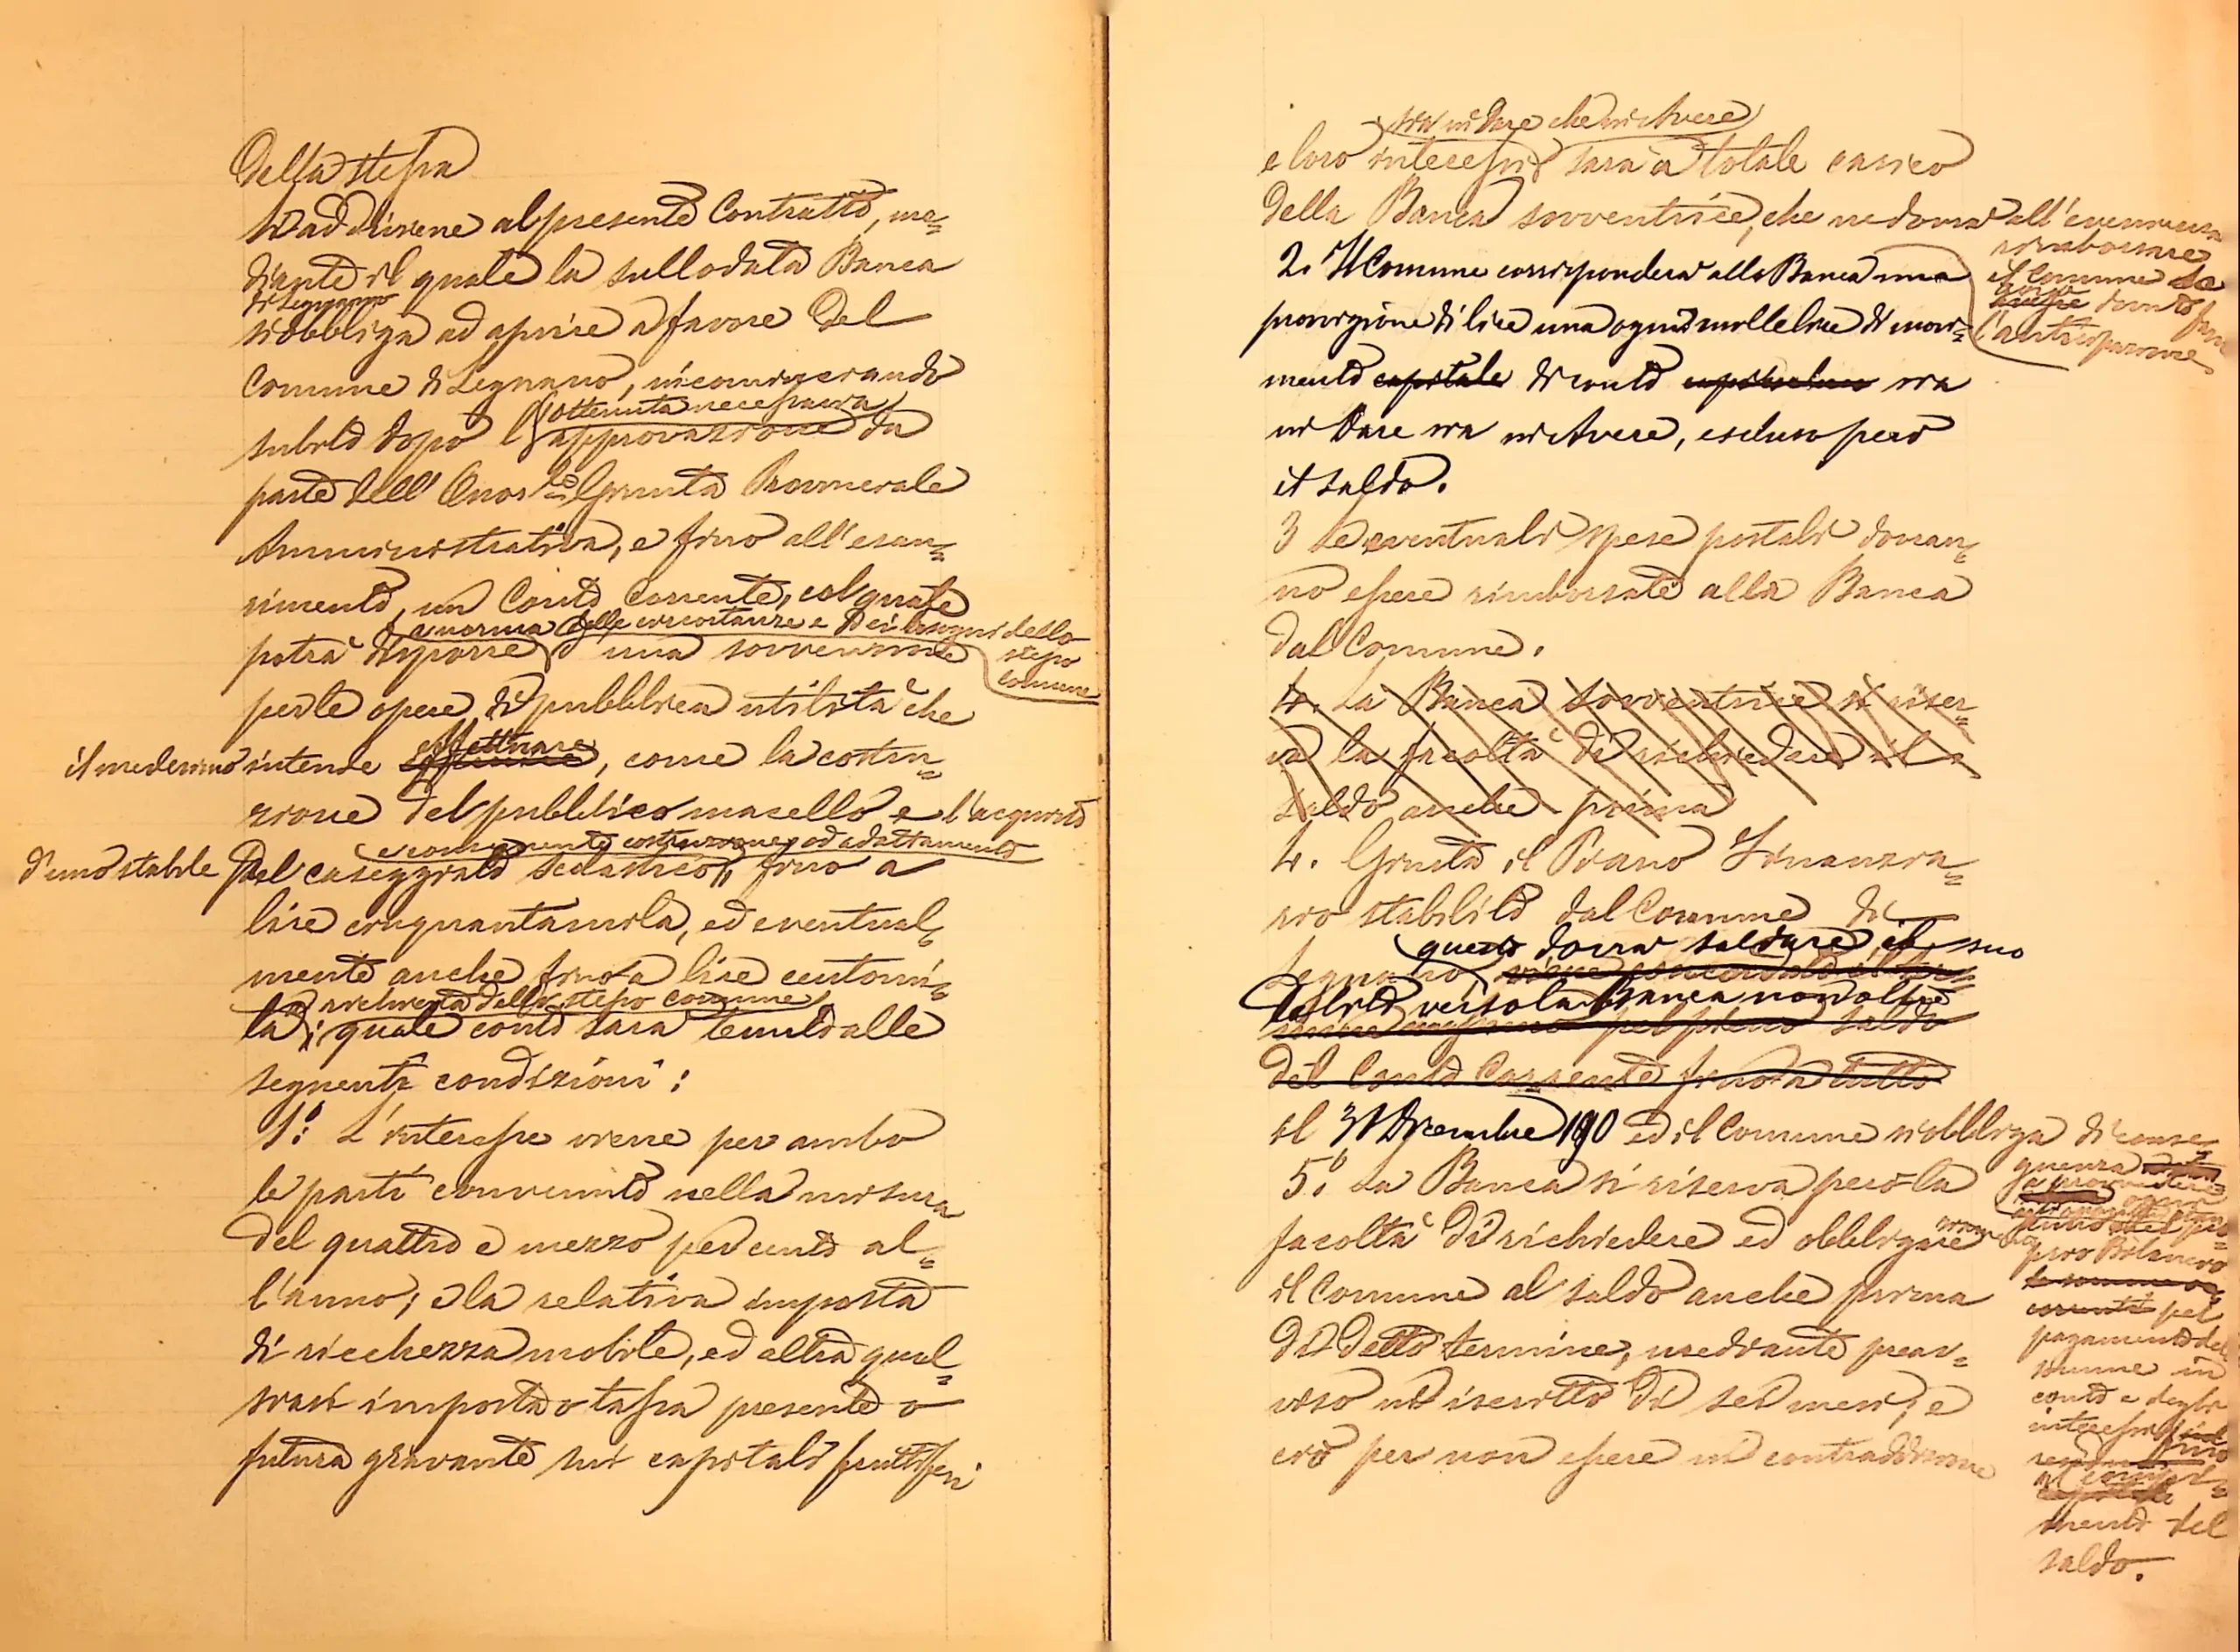 della stessa
si addiviene al presente Contratto, me=
diante il quale la sullodata Banca
di Legnano
si obbliga ad aprire a favore del
Comune di Legnano, incominciando
ottenuta necessaria
subito dopo l'approvazione da
parte dell' Onor.le Giunta Provinciale
Amministrativa, e fino all'esau=
rimento, un Conto Corrente, col quale
a norma delle circostanze e dei bisogni dello
stesso
Comune
potrà disporre d'una sovvenzione
per le opere di pubblica utilità che
effettuare
il medesimo intende , come la costru=
zione del pubblico macello e l'acquisto
e conseguente costruzione ed adattamento
d'uno stabile pel caseggiato scolastico, fino a
lire cinquantamila, ed eventual=
mente anche fino a lire centomi=
a richiesta dello stesso Comune
la; quale conto sarà tenuto alle
seguenti condizioni:
1.° L'interesse viene per ambo
le parti convenuto nella misura
del quattro e mezzo per cento al=
l'anno; e la relativa imposta
di ricchezza mobile, ed altra qual=
siasi imposta o tassa presente o
futura gravante sui capitali fruttiferi
sia in Dare che in Avere
e loro interessi sarà a totale carico
della Banca sovventrice, che ne dovrà all'evenienza
rimborsare
il Comune
dovuto
l'anticipazione
2. Il Comune corrisponderà alla Banca una
provvigione di lire una ogni mille lire di movi=
mento capitale di conto sia
in Dare sia in Avere, escluso però
il saldo.
3 Le eventuali spese postali dovran=
no essere rimborsate alla Banca
dal Comune.
4. La Banca sovventrice si riser=
va la facoltà di richiedere il
saldo anche prima
4. Giusta il Piano Finanzia=
rio stabilito dal Comune di
questo dovrà saldare il suo
Legnano,
debito verso la Banca non oltre
pel pieno saldo
del Conto Corrente fino a tutto
il 31 Dicembre 1910 ed il Comune si obbliga di conse=
guenza
a provvedere
pro Bilancio
le somme oc=
correnti pel
pagamento del
somme in
conto e degli
interessi
fino
al compi=
mento del
saldo.
5.° La Banca si riserva però la
facoltà di richiedere ed obbligare
il Comune al saldo anche prima
di detto termine, mediante preav=
viso in iscritto di sei mesi; e
ciò per non essere in contraddizione